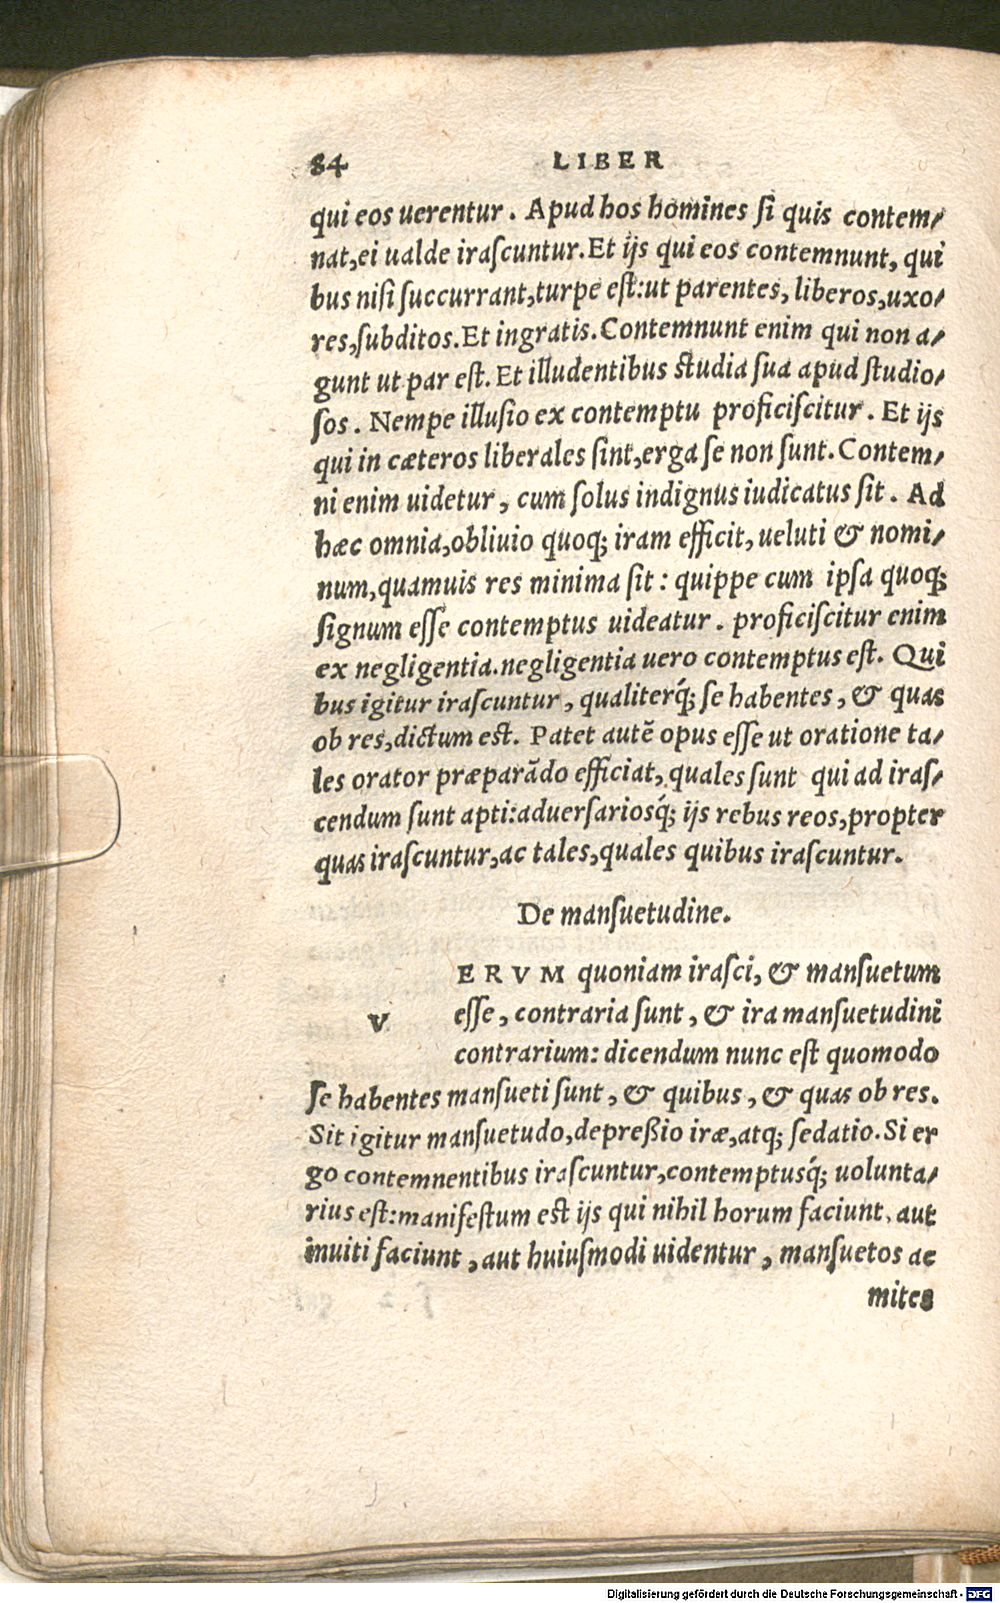 84 LIBER
qui eos uerentur. Apud hos homines si quis contem/
nat, ei ualde irascuntur. Et ijs qui eos contemnunt, qui
bus nisi succurrant, turpe est: ut parentes, liberos, uxo/
res, subditos. Et ingratis. Contemnunt enim qui non a/
gunt ut par est. Et illudentibus studia sua apud studio/
sos. Nempe illusio ex contemptu proficiscitur. Et ijs
qui in cæteros liberales sint, erga se non sunt. Contem/
ni enim uidetur, cum solus indignus iudicatus sit. Ad
hæc omnia, obliuio quoq; iram efficit, ueluti & nomi/
num, quamuis res minima sit: quippe cum ipsa quoq;
signum esse contemptus uideatur. proficiscitur enim
ex negligentia. negligentia uero contemptus est. Qui
bus igitur irascuntur, qualiterq́; se habentes, & quas
ob res, dictum est. Patet autē opus esse ut oratione ta/
les orator præparādo efficiat, quales sunt qui ad iras/
cendum sunt apti: aduersariosq́; ijs rebus reos, propter
quas irascuntur, ac tales, quales quibus irascuntur.
De mansuetudine.
VERVM quoniam irasci, & mansuetum
esse, contraria sunt, & ira mansuetudini
contrarium: dicendum nunc est quomodo
se habentes mansueti sunt, & quibus, & quas ob res.
Sit igitur mansuetudo, depreßio iræ, atq; sedatio. Si er
go contemnentibus irascuntur, contemptusq́; uolunta/
rius est: manifestum est ijs qui nihil horum faciunt, aut
inuiti faciunt, aut huiusmodi uidentur, mansuetos ac
mites
Digitalisierung gefördert durch die Deutsche Forschungsgemeinschaft - DFG